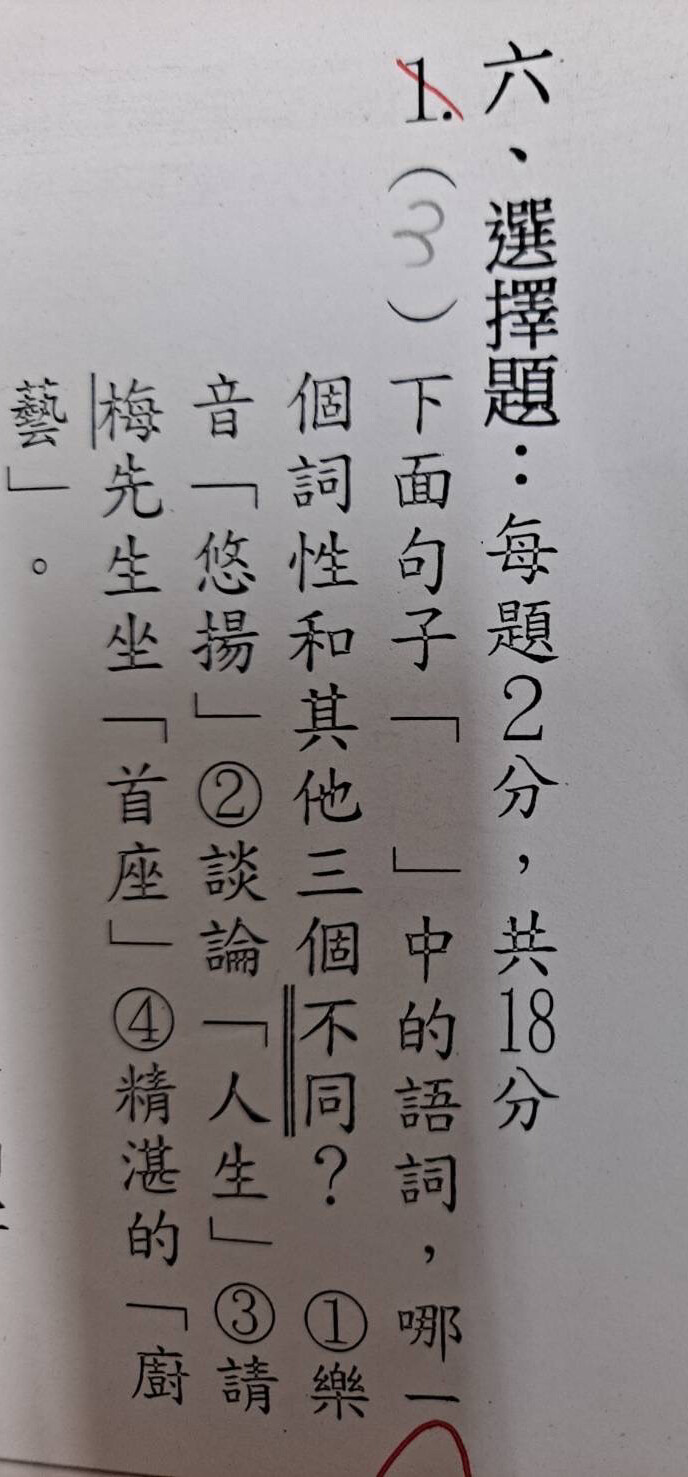 六、選擇題：每題2分，共18分
1.（3）下面句子「　」中的語詞，哪一
個詞性和其他三個不同？　①樂
音「悠揚」②談論「人生」③請
梅先生坐「首座」④精湛的「廚
藝」。